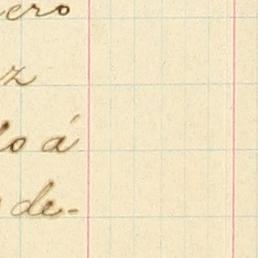 ero
z
lo á
de-